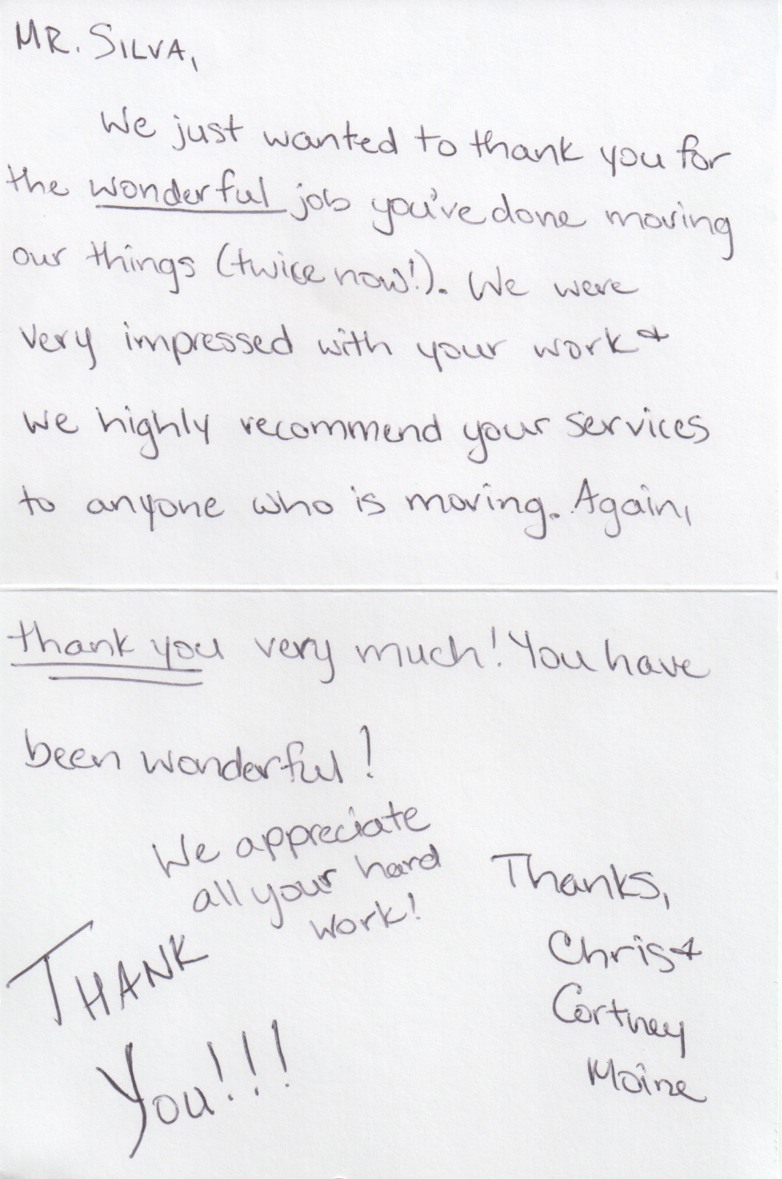 MR. SILVA,
We just wanted to thank you for
the wonderful job you've done moving
our things (twice now!). We were
very impressed with your work &
we highly recommend your services
to anyone who is moving. Again,
thank you very much! You have
been wonderful!
We appreciate
all your hard
work!
THANK
YOU!!!
Thanks,
Chris &
Cortney
Moine